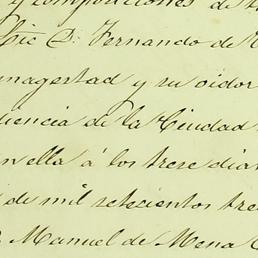 y composiciones de
Lic D. Fernando de
magestad y su oidor
diencia de la Ciudad
en ella á los trese dias
de mil setecientos tre
Manuel de Mena